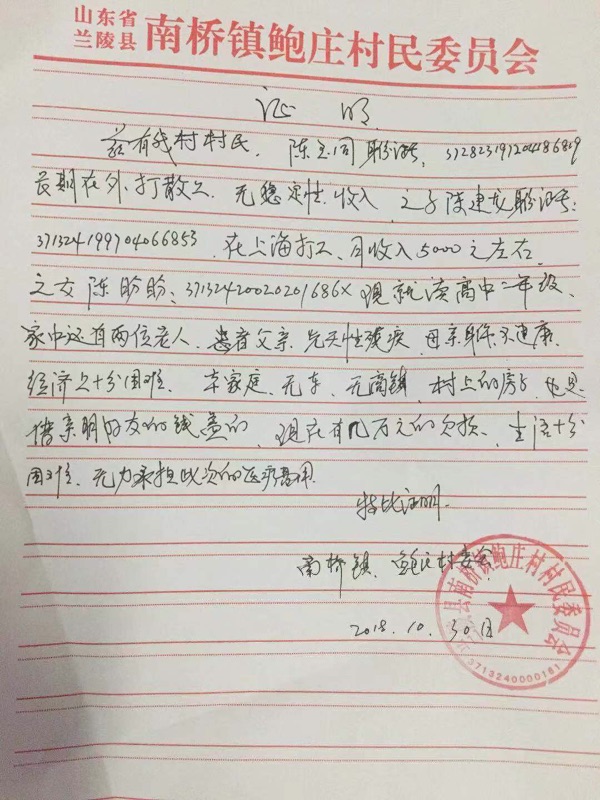 山东省
兰陵县 南桥镇鲍庄村民委员会
证 明
兹有我村村民、陈立同身份证号，372823197204186819
长期在外、打散工、无稳定性收入、之子陈建龙身份证号：
371324199704066853、在上海打工、月收入5000元左右、
之女陈盼盼、37132420020201686X 现就读高中二年级、
家中还有两位老人、患者父亲、先天性残疾、母亲身体不健康、
经济上十分困难、本家庭、无车、无商铺、村上的房子、也是
借亲朋好友的钱盖的、现在有几万元的欠损、生活十分
困难、无力承担此次的医疗费用
特此证明.
南桥镇、鲍庄村委会
2018.10.30日
县南桥镇鲍庄村村民委员会
3713240000181